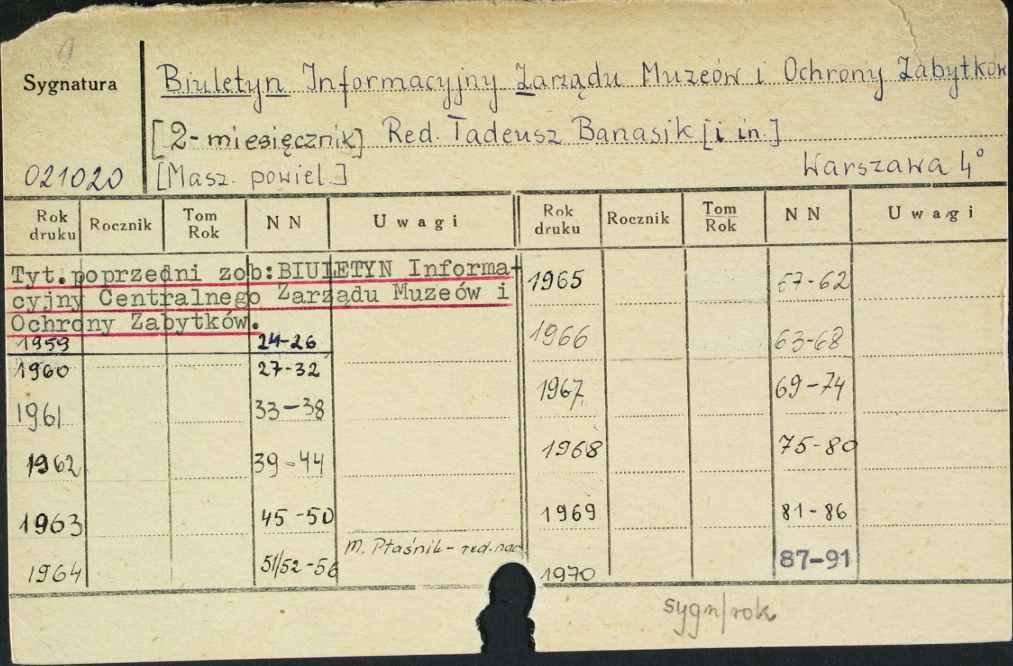 Sygnatura
Biuletyn Informacyjny Zarządu Muzeów i Ochrony Zabytków
[2-miesięcznik] Red. Tadeusz Banasik [i in.]
021020 [Masz. powiel.] Warszawa 4°
Rok druku Rocznik Tom Rok NN Uwagi Rok druku Rocznik Tom Rok NN Uwagi
Tyt.poprzedni zob:BIULETYN Informa-
cyjny Centralnego Zarządu Muzeów i
Ochrony Zabytków.
1959 24-26
1960 27-32
1961 33-38
1962 39-44
1963 45-50
1964 51/52-56 M. Ptaśnik - red. nacz
1965 57-62
1966 63-68
1967 69-74
1968 75-80
1969 81-86
1970 87-91
sygn/rok